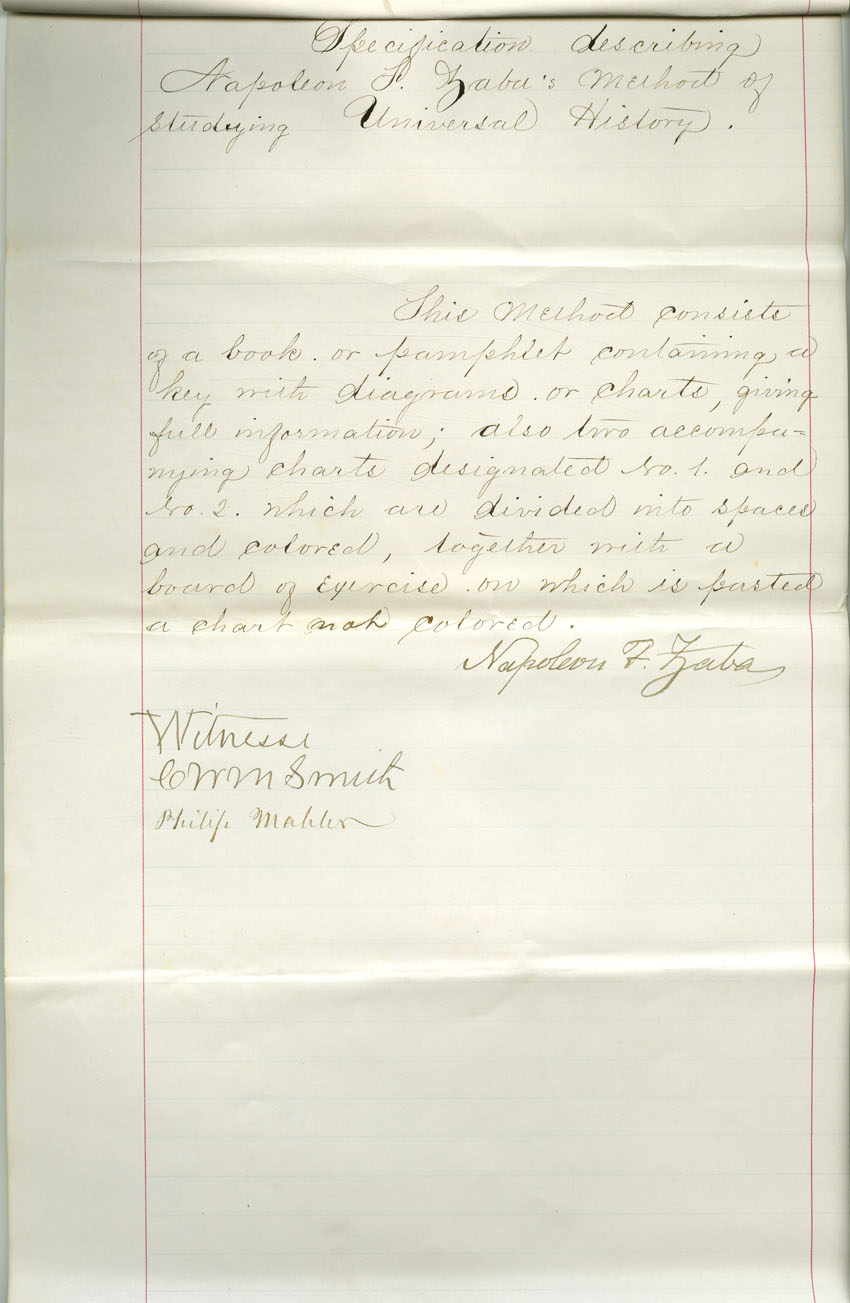 Specification describing
Napoleon F. Zaba's Method of
studying Universal History.
This Method consists
of a book. or pamphlet containing a
key with diagrams. or charts, giving
full information; also two accompa=
nying charts designated No. 1. and
No. 2. which are divided into spaces
and colored, together with a
board of exercise. on which is pasted
a chart not colored.
Napoleon F. Zaba
Witnesse
C W M Smith
Philip Mahler